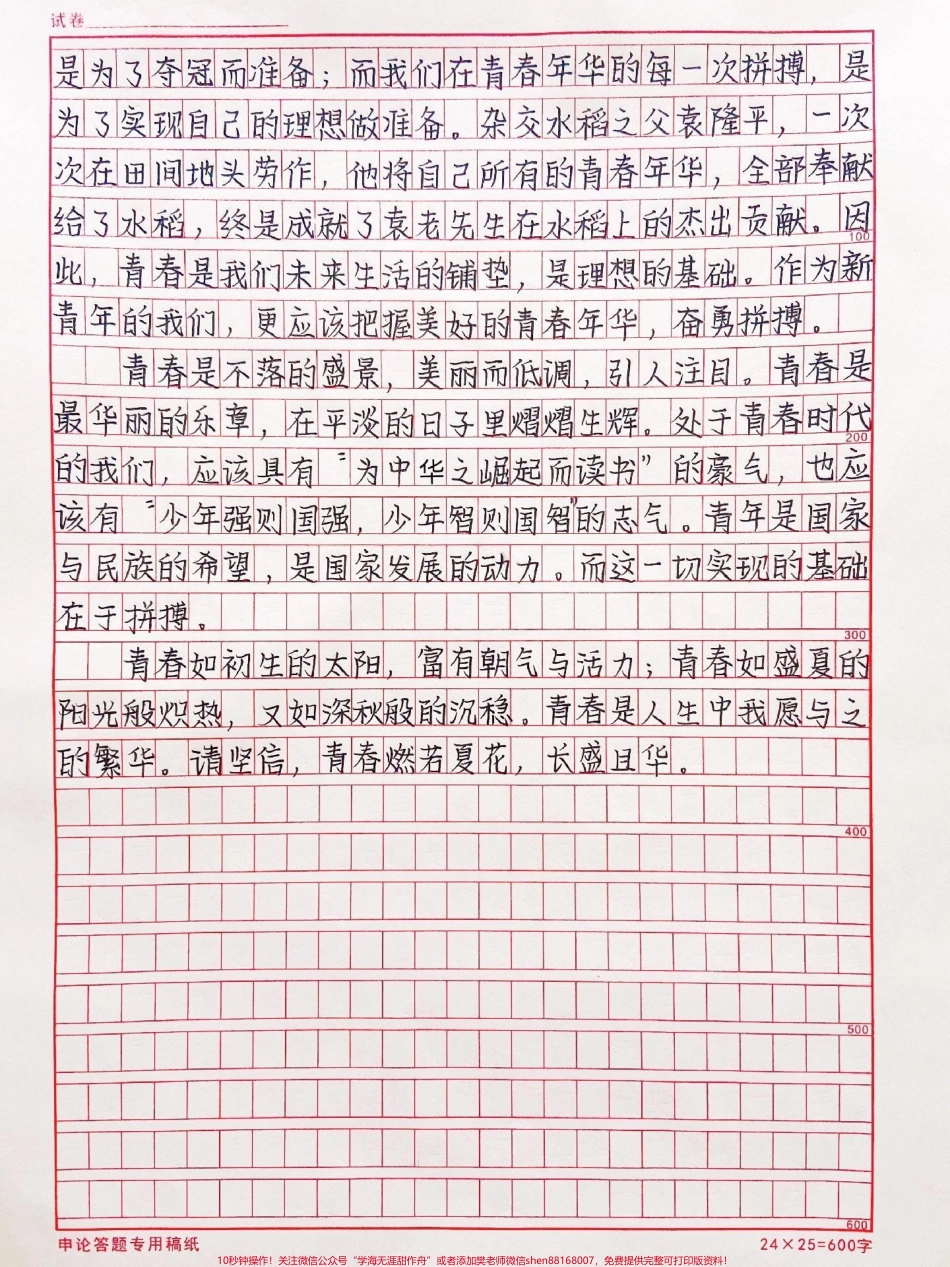 试卷
是为了夺冠而准备；而我们在青春年华的每一次拼搏，是
为了实现自己的理想做准备。杂交水稻之父袁隆平，一次
次在田间地头劳作，他将自己所有的青春年华，全部奉献
给了水稻，终是成就了袁老先生在水稻上的杰出贡献。因
100
此，青春是我们未来生活的铺垫，是理想的基础。作为新
青年的我们，更应该把握美好的青春年华，奋勇拼搏。
青春是不落的盛景，美丽而低调，引人注目。青春是
最华丽的乐章，在平淡的日子里熠熠生辉。处于青春时代
200
的我们，应该具有“为中华之崛起而读书”的豪气，也应
该有“少年强则国强，少年智则国智”的志气。青年是国家
与民族的希望，是国家发展的动力。而这一切实现的基础
在于拼搏。
300
青春如初生的太阳，富有朝气与活力；青春如盛夏的
阳光般炽热，又如深秋般的沉稳。青春是人生中我愿与之
的繁华。请坚信，青春燃若夏花，长盛且华。
400
500
600
申论答题专用稿纸
24×25=600字
10秒钟操作！关注微信公众号“学海无涯甜作舟”或者添加樊老师微信shen88168007，免费提供完整可打印版资料！